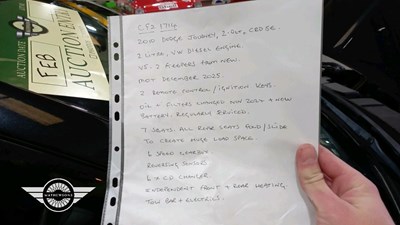 AUCTION DATE
FEB
CF2 1714
2010 DODGE JOURNEY, 2.0LT, CRD SE.
2 LITRE, VW DIESEL ENGINE.
V5 - 2 KEEPERS FROM NEW.
MOT DECEMBER 2025.
2 REMOTE CONTROL/IGNITION KEYS.
OIL + FILTERS CHANGED NOV 2024 + NEW
BATTERY. REGULARLY SERVICED.
7 SEATS. ALL REAR SEATS FOLD/SLIDE
TO CREATE HUGE LOAD SPACE.
6 SPEED GEARBOX
REVERSING SENSOR
6 + CD CHANGER
INDEPENDENT FRONT + REAR HEATING.
TOW BAR + ELECTRICS.
MATHEWSONS